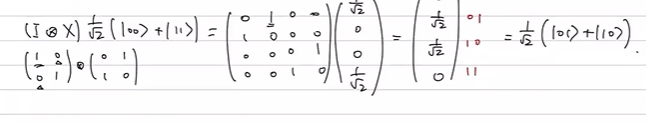 (I ⊗ X) 1/√2 (|00⟩ + |11⟩) = ( 0 1 0 0 ; 1 0 0 0 ; 0 0 0 1 ; 0 0 1 0 ) ( 1/√2 ; 0 ; 0 ; 1/√2 ) = ( 1/√2 ; 1/√2 ; 0 ) 01 10 11 = 1/√2 (|01⟩ + |10⟩).
( 1 0 ; 0 1 ) ⊗ ( 0 1 ; 1 0 )